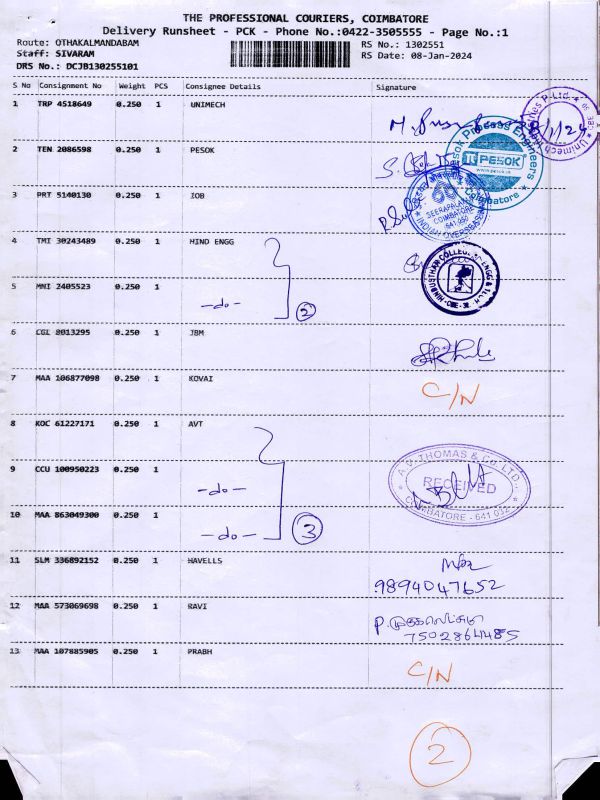 THE PROFESSIONAL COURIERS, COIMBATORE
Delivery Runsheet - PCK - Phone No.:0422-3505555 - Page No.:1
Route: OTHAKALMANDABAM
Staff: SIVARAM
DRS No.: DCJB130255101
RS No.: 1302551
RS Date: 08-Jan-2024
S No Consignment No Weight PCS Consignee Details Signature
1 TRP 4518649 0.250 1 UNIMECH
2 TEN 2086598 0.250 1 PESOK
PESOK
Coimbatore
3 PRT 5140130 0.250 1 IOB
SEERAPALAYAM
COIMBATORE
641 050
4 TMI 30243489 0.250 1 HIND ENGG
5 MNI 2405523 0.250 1
-do- 2
6 CGL 8013295 0.250 1 JBM
7 MAA 106877098 0.250 1 KOVAI C/N
8 KOC 61227171 0.250 1 AVT
9 CCU 100950223 0.250 1
-do-
A.V. THOMAS & Co. LTD.
RECEIVED
COIMBATORE - 641 032
10 MAA 863049300 0.250 1
-do- 3
11 SLM 336892152 0.250 1 HAVELLS
9894047652
12 MAA 573069698 0.250 1 RAVI
7502864485
13 MAA 107885905 0.250 1 PRABH C/N
2